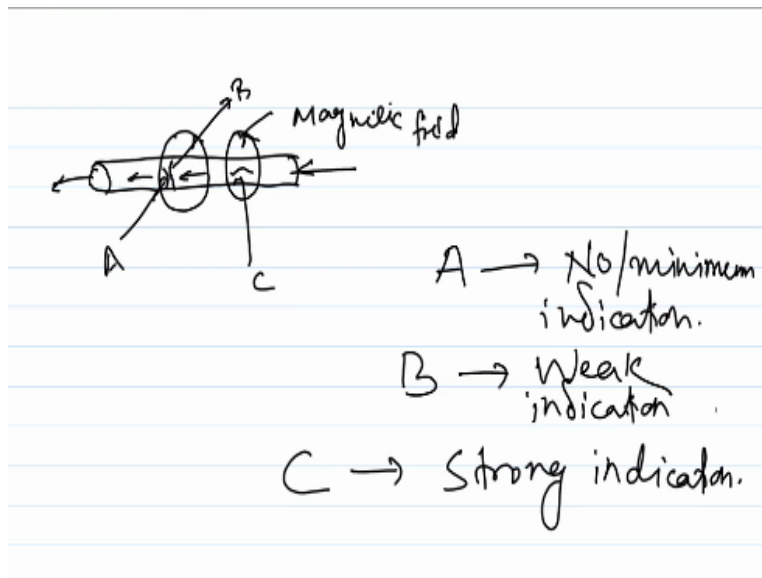 B
Magnetic field
A
C
A → No/minimum
indication.
B → Weak
indication
C → Strong indication.